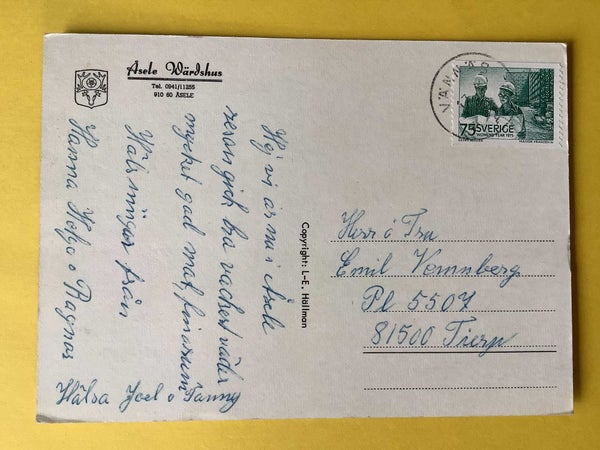 Åsele Wärdshus
Tel. 0941/11255
910 60 ÅSELE
Hej vi är nu i Åsele
resan gick bra vackert väder
mycket god mat, fina rum
Hälsningar från
Hanna Helge o Ragnar
Hälsa Joel o Fanny
Copyright: L-E. Hällman
VÄNNÄS
75 SVERIGE
WOMENS YEAR 1975
Herr o Fru
Emil Vennberg
Pl 5504
81500 Tierp